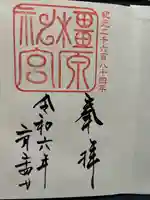 紀元二千六百八十四年
奉拝
橿原
神宮
令和六年